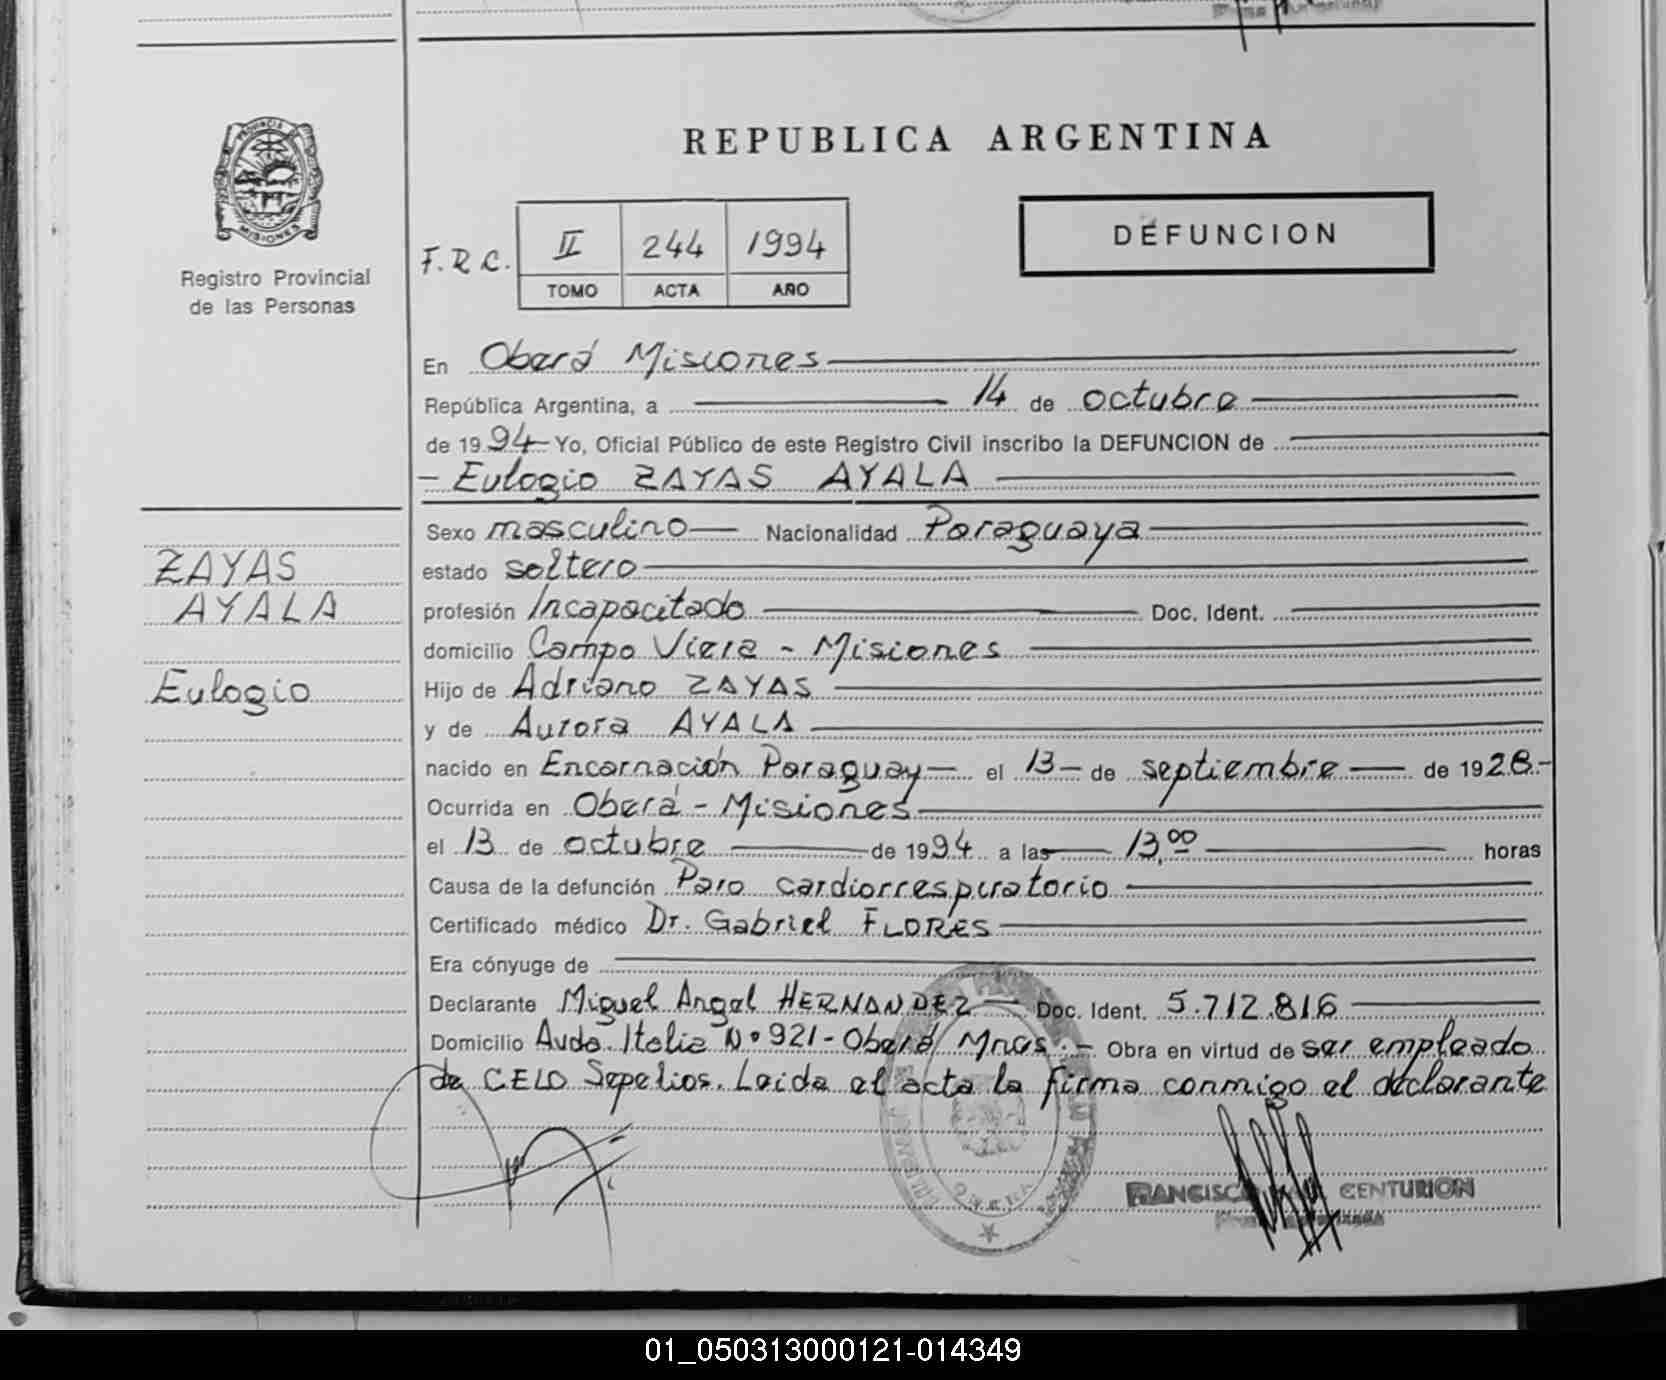 REPUBLICA ARGENTINA
PROVINCIA DE
MISIONES
Registro Provincial
de las Personas
F.R.C.
II 244 1994
TOMO ACTA AÑO
DEFUNCION
En Oberá Misiones
República Argentina, a 14 de octubre
de 1994 Yo, Oficial Público de este Registro Civil inscribo la DEFUNCION de
- Eulogio ZAYAS AYALA
ZAYAS
AYALA
Eulogio
Sexo masculino Nacionalidad Paraguaya
estado soltero
profesión Incapacitado Doc. Ident.
domicilio Campo Viera - Misiones
Hijo de Adriano ZAYAS
y de Aurora AYALA
nacido en Encarnación Paraguay el 13 de septiembre de 1928.-
Ocurrida en Oberá - Misiones
el 13 de octubre de 1994 a las 13,00 horas
Causa de la defunción Paro cardiorrespiratorio
Certificado médico Dr. Gabriel FLORES
Era cónyuge de
Declarante Miguel Angel HERNANDEZ Doc. Ident. 5.712.816
Domicilio Avda. Italia Nº 921 - Oberá Mnes. - Obra en virtud de ser empleado
de CELO Sepelios. Leida el acta la firma conmigo el declarante
FRANCISCO CENTURION
01_050313000121-014349